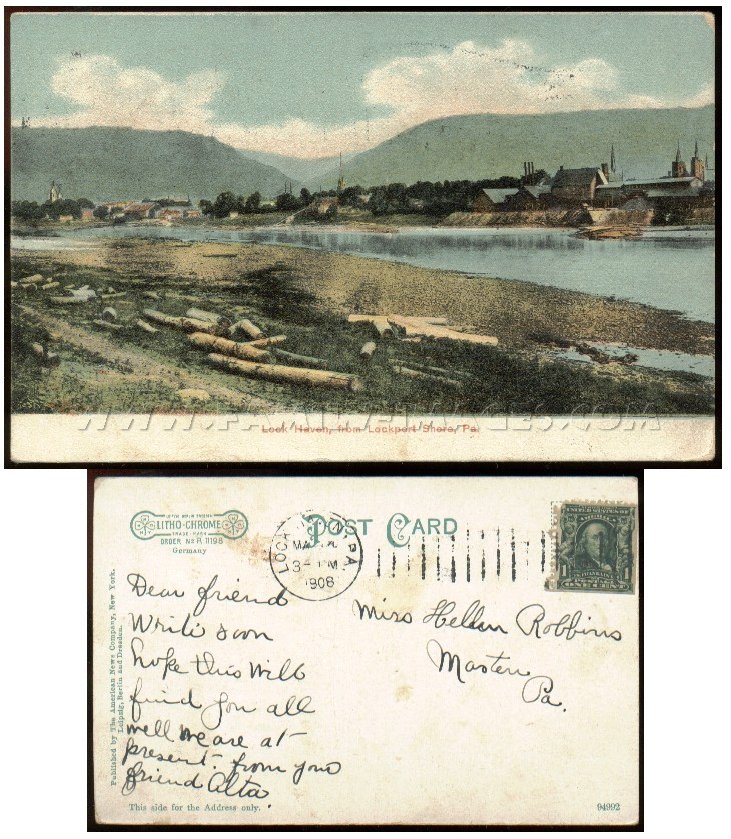 Lock Haven, from Lockport Shore, Pa.
LITHO-CHROME
TRADE-MARK
ORDER No R 11198
Germany
POST CARD
LOCK HAVEN, PA
1908
UNITED STATES OF
Dear friend
Write soon
hope this will
find you all
well we are at
present. from your
friend Alta.
Miss Hellen Robbins
Masten
Pa.
Published by The American News Company, New York.
Leipzig, Berlin and Dresden.
This side for the Address only.
94992